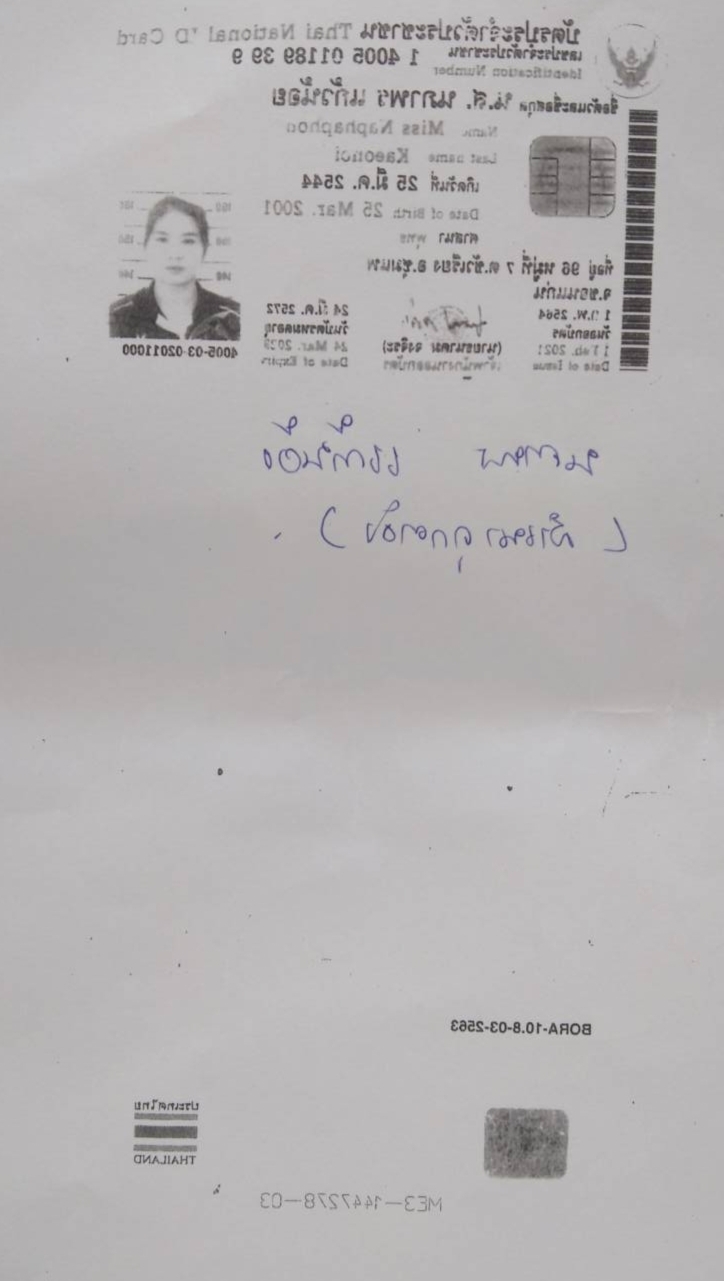 บัตรประจำตัวประชาชน Thai National ID Card
เลขประจำตัวประชาชน 1 4005 01189 39 9
Identification Number
ชื่อตัวและชื่อสกุล น.ส. นภาพร แก้วน้อย
Name Miss Naphaphon
Last name Kaeonoi
เกิดวันที่ 25 มี.ค. 2544
Date of Birth 25 Mar. 2001
ศาสนา พุทธ
ที่อยู่ 96 หมู่ที่ 7 ต.ชุมแพ
จ.ขอนแก่น
1 ก.พ. 2564
วันออกบัตร
1 Feb. 2021
Date of Issue
เจ้าพนักงานออกบัตร
24 มี.ค. 2572
วันบัตรหมดอายุ
24 Mar. 2029
Date of Expiry
4005-03-02011000
BORA-10.8-03-2563
ประเทศไทย
THAILAND
ME3-1447278-03